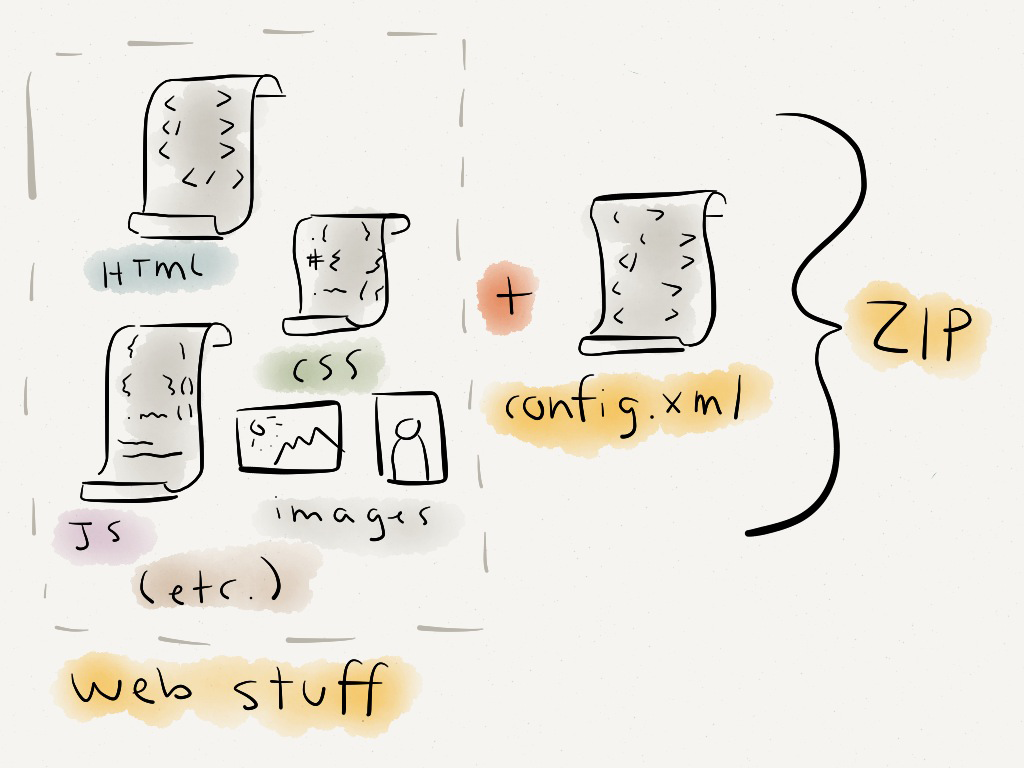 < >
</ >
< >
</ >
HTML
. { }
# {
CSS
{ )
{ } ()
()
JS
images
(etc.)
web stuff
+
< >
< >
</ >
< >
< >
config.xml
ZIP